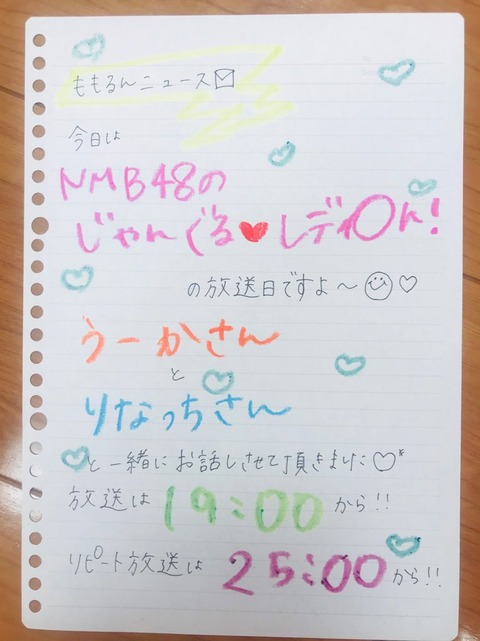 ももるんニュース✉
今日は
NMB48の
じゃんぐる♥レディOん!
の放送日ですよ〜☺♡
うーかさん
と
りなっちさん
と一緒にお話しさせて頂きました♡*
放送は19:00から!!
リピート放送は25:00から!!